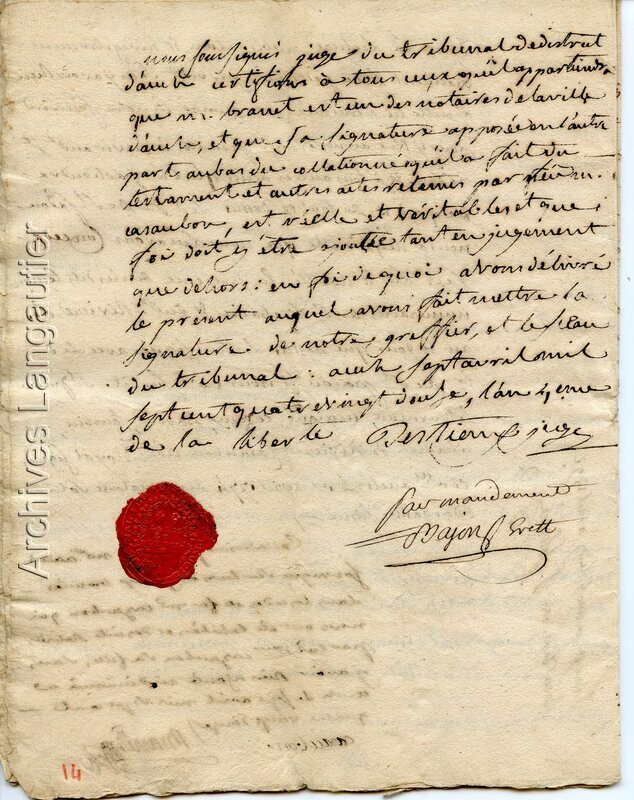 nous soussignés juge du tribunal dedistrict
d'auch certifions à tous ceux qu'il appartiendra
que m: branet est un des notaires delaville
d'auch, et que sa signature apposée en l'autre
part aubas du collationné qu'il a fait du
testament et autres actes retenus par feu m.
casaubon, est réelle et véritable et que
foi doit y être ajoutée tant en jugement
que dehors: en foi dequoi avons délivré
le présent auquel avons fait mettre la
signature de notre greffier, et le sceau
du tribunal: auch sept avril mil
sept cent quatre vingt douse, l'an 4eme
de la liberté juge
Par mandement
Archives Langautier
14